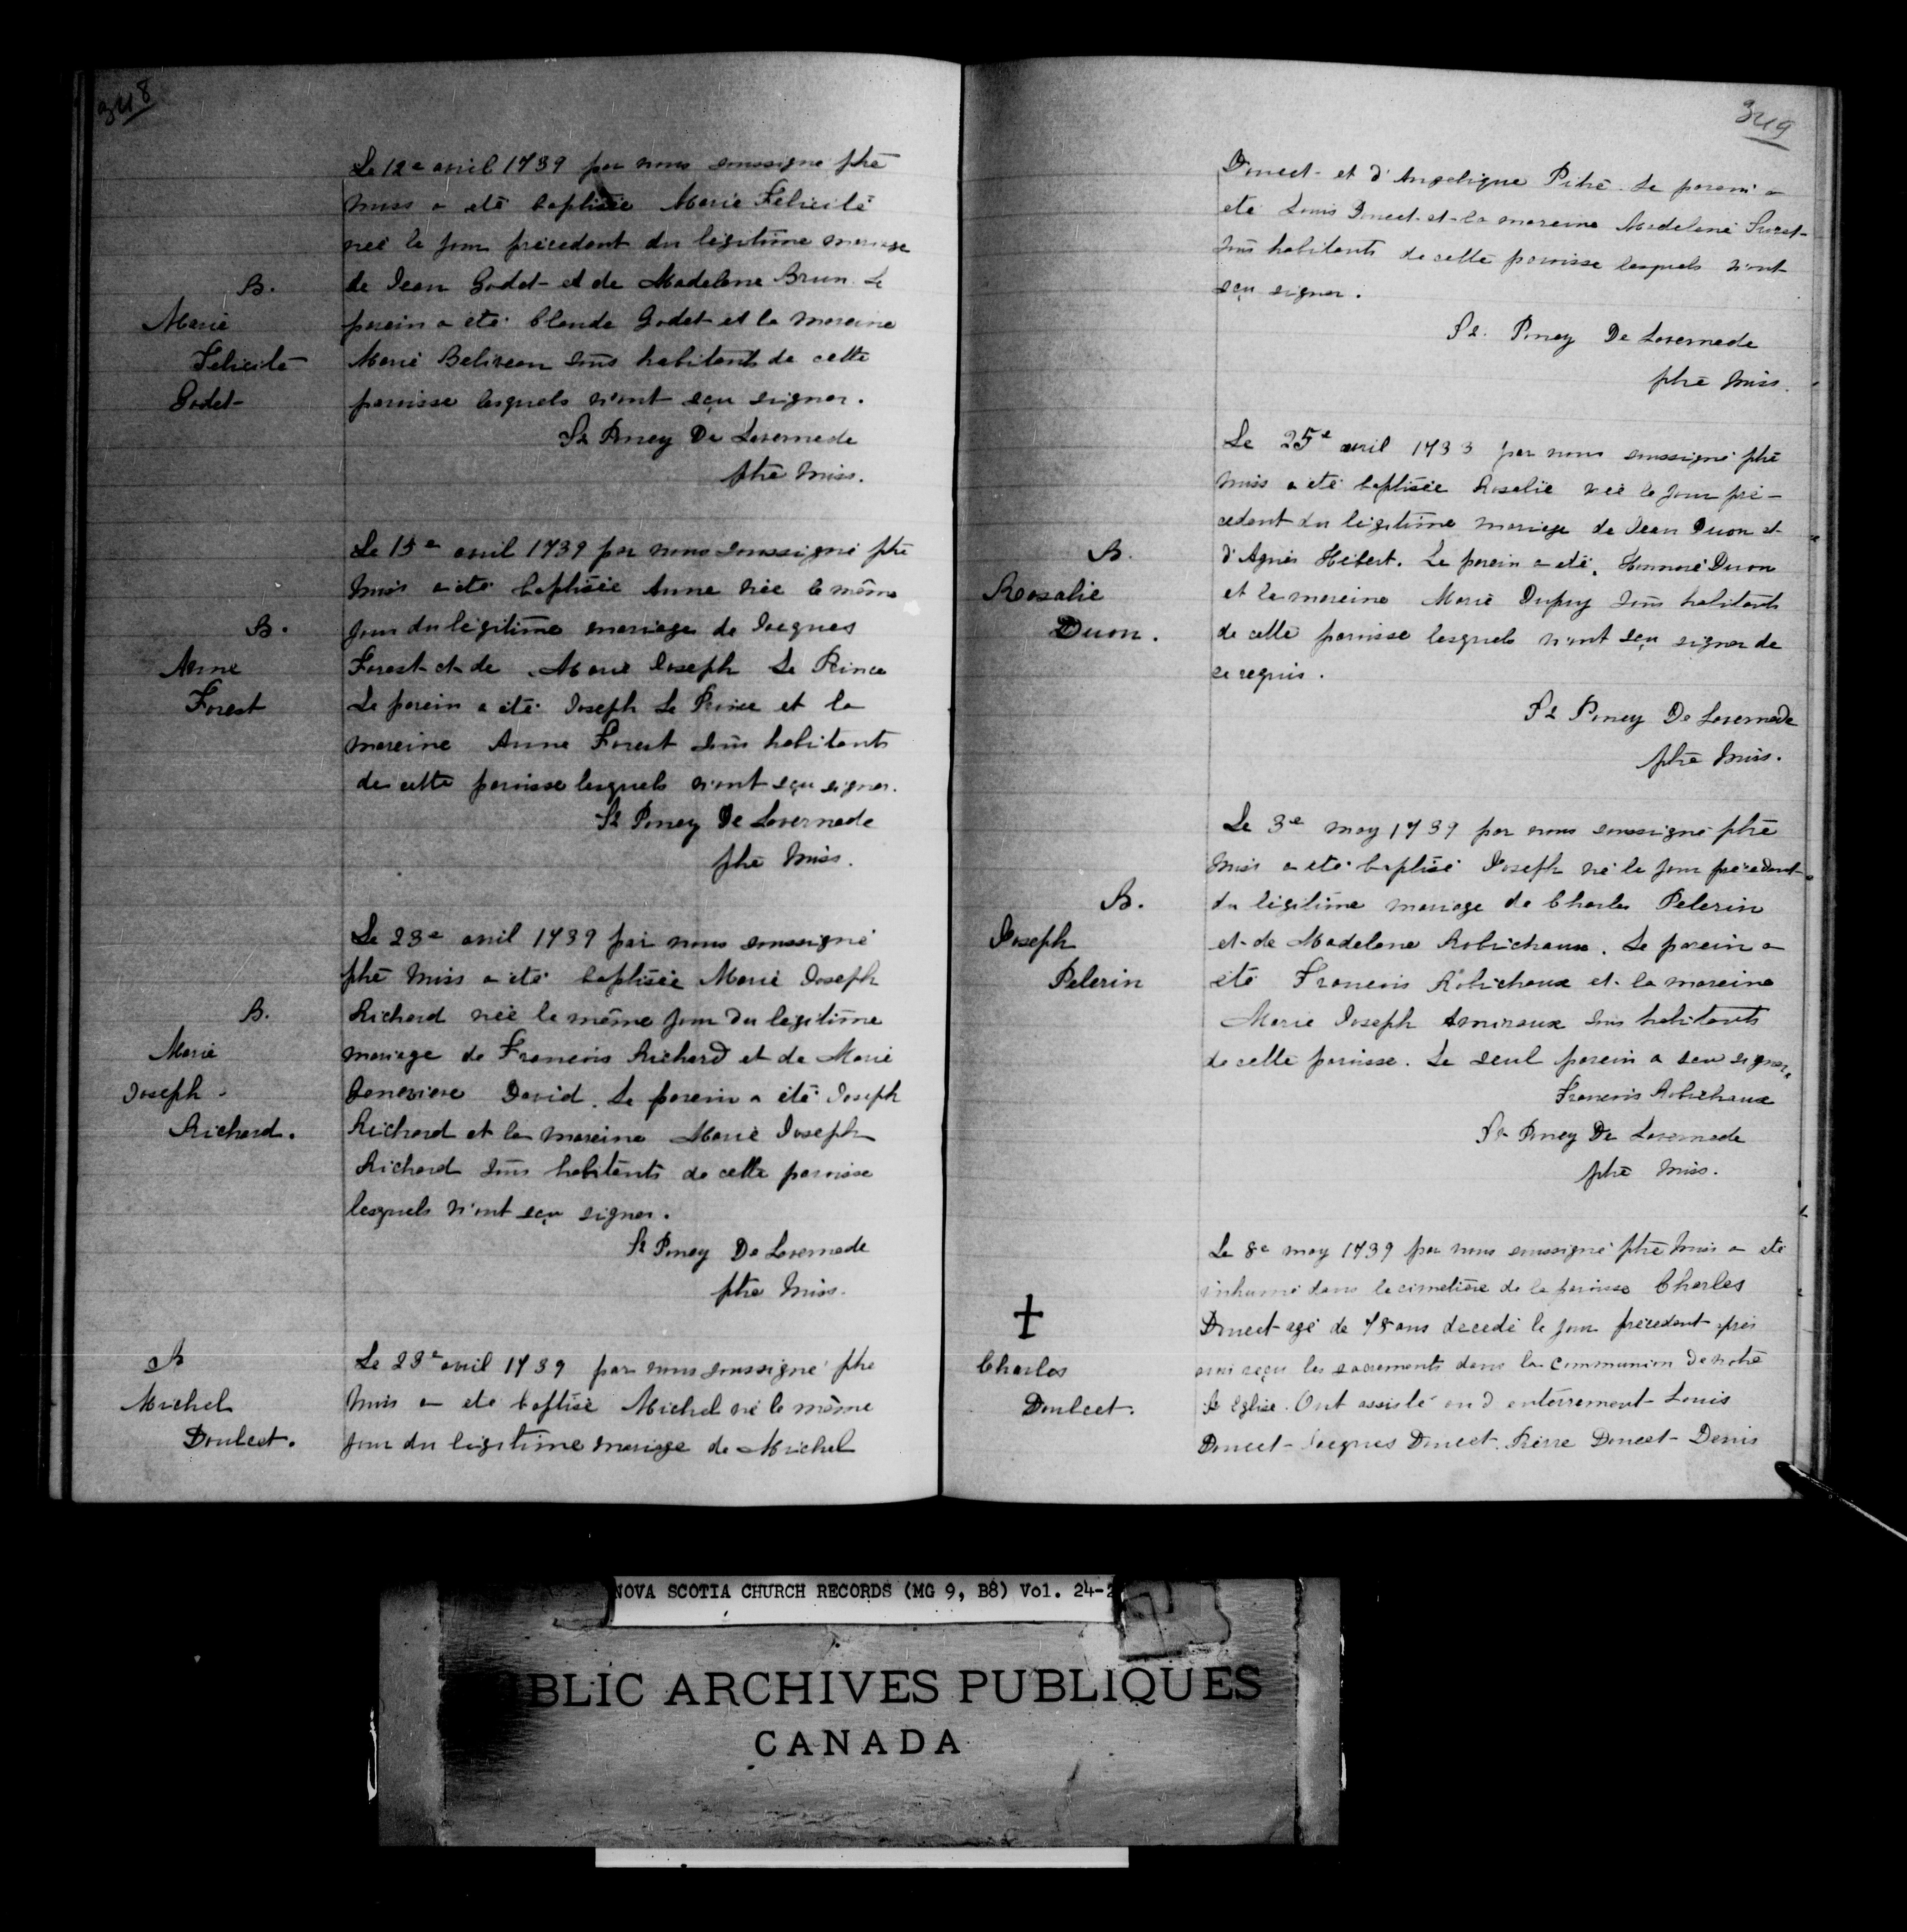 348
Le 12e avril 1739 par nous soussigné ptre
miss a eté baptisée Marie Felicité
née le jour précedent du légitime mariage
B.
de Jean Godet et de Madelene Brun. Le
Marie
parein a été Claude Godet et la mareine
Felicité
Marie Beliveau tous habitants de cette
Godet
paroisse lesquels n'ont sçu signer.
St Poncy De Lavernede
ptre miss.
Le 15e avril 1739 par nous soussigné ptre
miss a été baptisée Anne née le même
B.
jour du légitime mariage de Jacques
Anne
Forest et de Marie Joseph Le Prince
Forest
Le parein a été Joseph Le Prince et la
mareine Anne Forest tous habitants
de cette paroisse lesquels n'ont sçu signer.
St Poncy De Lavernede
ptre miss.
Le 23e avril 1739 par nous soussigné
ptre miss a été baptisée Marie Joseph
B.
Richard née le même jour du legitime
Marie
mariage de Francois Richard et de Marie
Joseph
Genevieve David. Le parein a été Joseph
Richard.
Richard et la mareine Marie Joseph
Richard tous habitants de cette paroisse
lesquels n'ont sçu signer.
St Poncy De Lavernede
ptre miss.
B
Le 23e avril 1739 par nous soussigné ptre
Michel
miss a eté baptisé Michel né le même
Doulcet.
jour du légitime mariage de Michel
349
Doucet et d'Angelique Pitre. Le parein a
eté Louis Doucet et la mareine Madelene Suret
tous habitants de cette paroisse lesquels n'ont
sçu signer.
St. Poncy De Lavernede
ptre miss.
Le 25e avril 1733 par nous soussigné ptre
miss a eté baptisée Rosalie née le jour pré-
cedent du légitime mariage de Jean Duon et
B.
d'Agnès Hébert. Le parein a été Honnoré Duon
Rosalie
et la mareine Marie Dupuy tous habitants
Duon.
de cette paroisse lesquels n'ont sçu signer de
ce requis.
St Poncy De Lavernede
ptre miss.
Le 3e may 1739 par nous soussigné ptre
miss a eté baptisé Joseph né le jour précedent
B.
du légitime mariage de Charles Pelerin
Joseph
et de Madelene Robichaux. Le parein a
Pelerin
été Francois Robichaux et la mareine
Marie Joseph Amiraux tous habitants
de cette paroisse. Le seul parein a sçu signer.
Francois Robichaux
St Poncy De Lavernede
ptre miss.
Le 8e may 1739 par nous soussigné ptre miss a eté
inhumé dans le cimetière de la paroisse Charles
Doucet agé de 75 ans decedé le jour précedent après
Charles
avoir reçu les sacrements dans la communion de notre
Doulcet.
Ste Eglise. Ont assisté au d enterrement Louis
Doucet Jacques Doucet Pierre Doucet Denis
NOVA SCOTIA CHURCH RECORDS (MG 9, B8) Vol. 24-2
BLIC ARCHIVES PUBLIQUES
CANADA